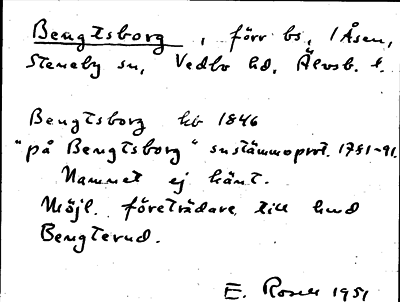 Bengtsborg, förr bs, 1 Åsen,
Steneby sn, Vedbo hd, Älvsb. l.
Bengtsborg hb 1846
"på Bengtsborg" sustämmoprot. 1781-91.
Namnet ej känt.
Möjl. företrädare till hmd
Bengterud.
E. Rosell 1951